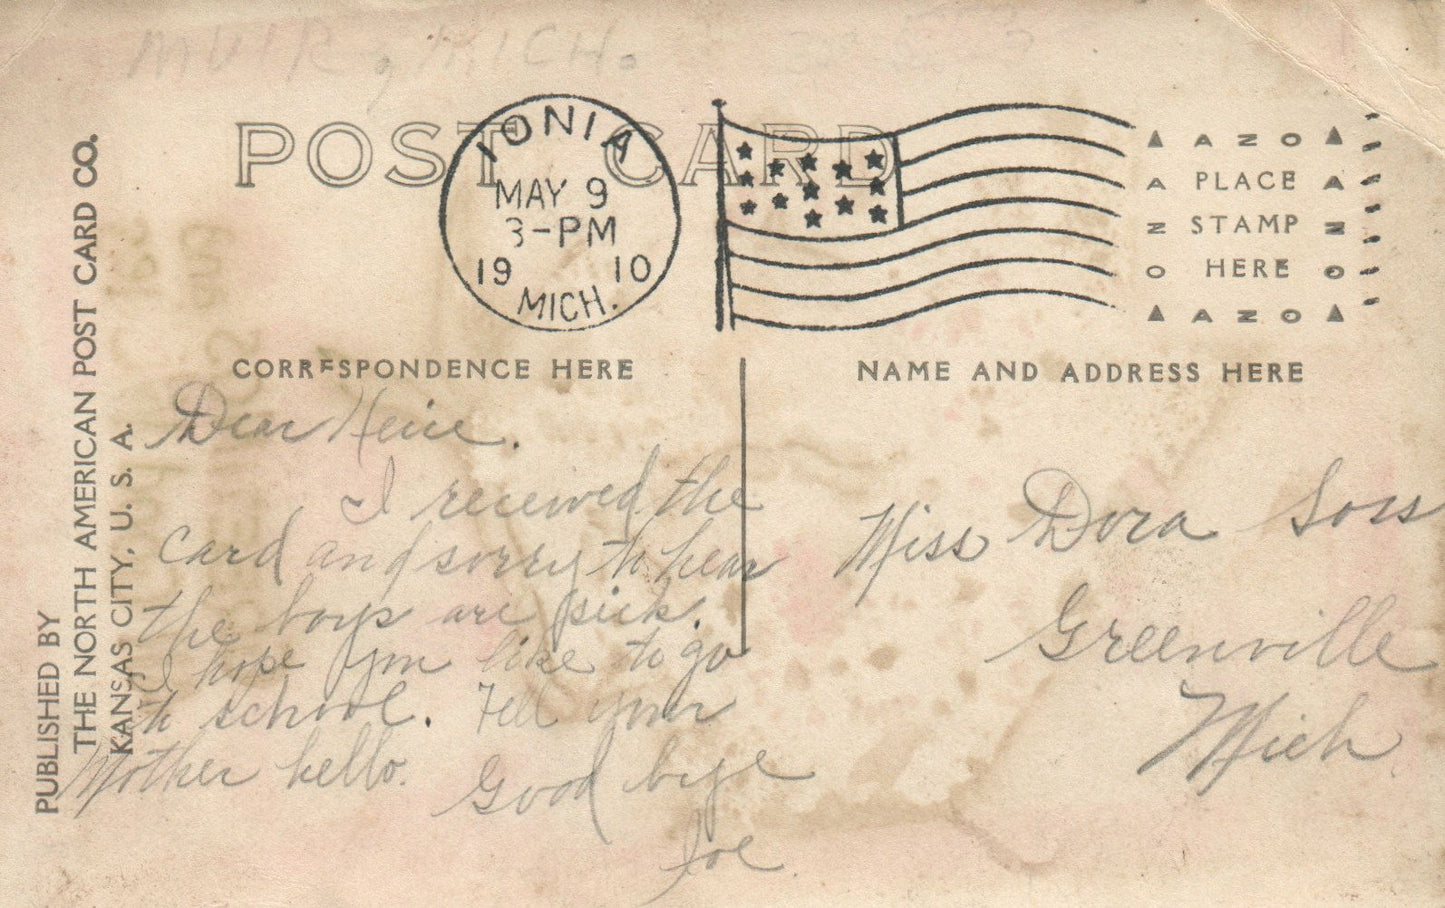 MUIR, MICH.
POST CARD
IONIA
MAY 9
3-PM
19 10
MICH.
AZO
PLACE
STAMP
HERE
AZO
AZO
AZO
PUBLISHED BY
THE NORTH AMERICAN POST CARD CO.
KANSAS CITY, U. S. A.
CORRESPONDENCE HERE
NAME AND ADDRESS HERE
Dear
I received the
card and sorry to hear
the boys are sick.
I hope you like to go
to school. Tell your
Mother hello.
Good bye
Joe
Miss Dora
Greenville
Mich.